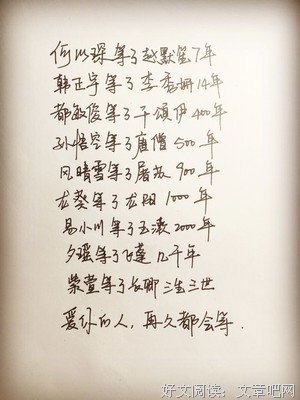 何以琛等了赵默笙7年
韩正宇等了李秀珊14年
都敏俊等了千颂伊400年
孙悟空等了唐僧500年
风晴雪等了屠苏900年
龙葵等了龙阳1000年
易小川等了玉漱2000年
夕瑶等了飞蓬几千年
紫萱等了长卿三生三世
爱你的人,再久都会等.
好文阅读:文章吧网